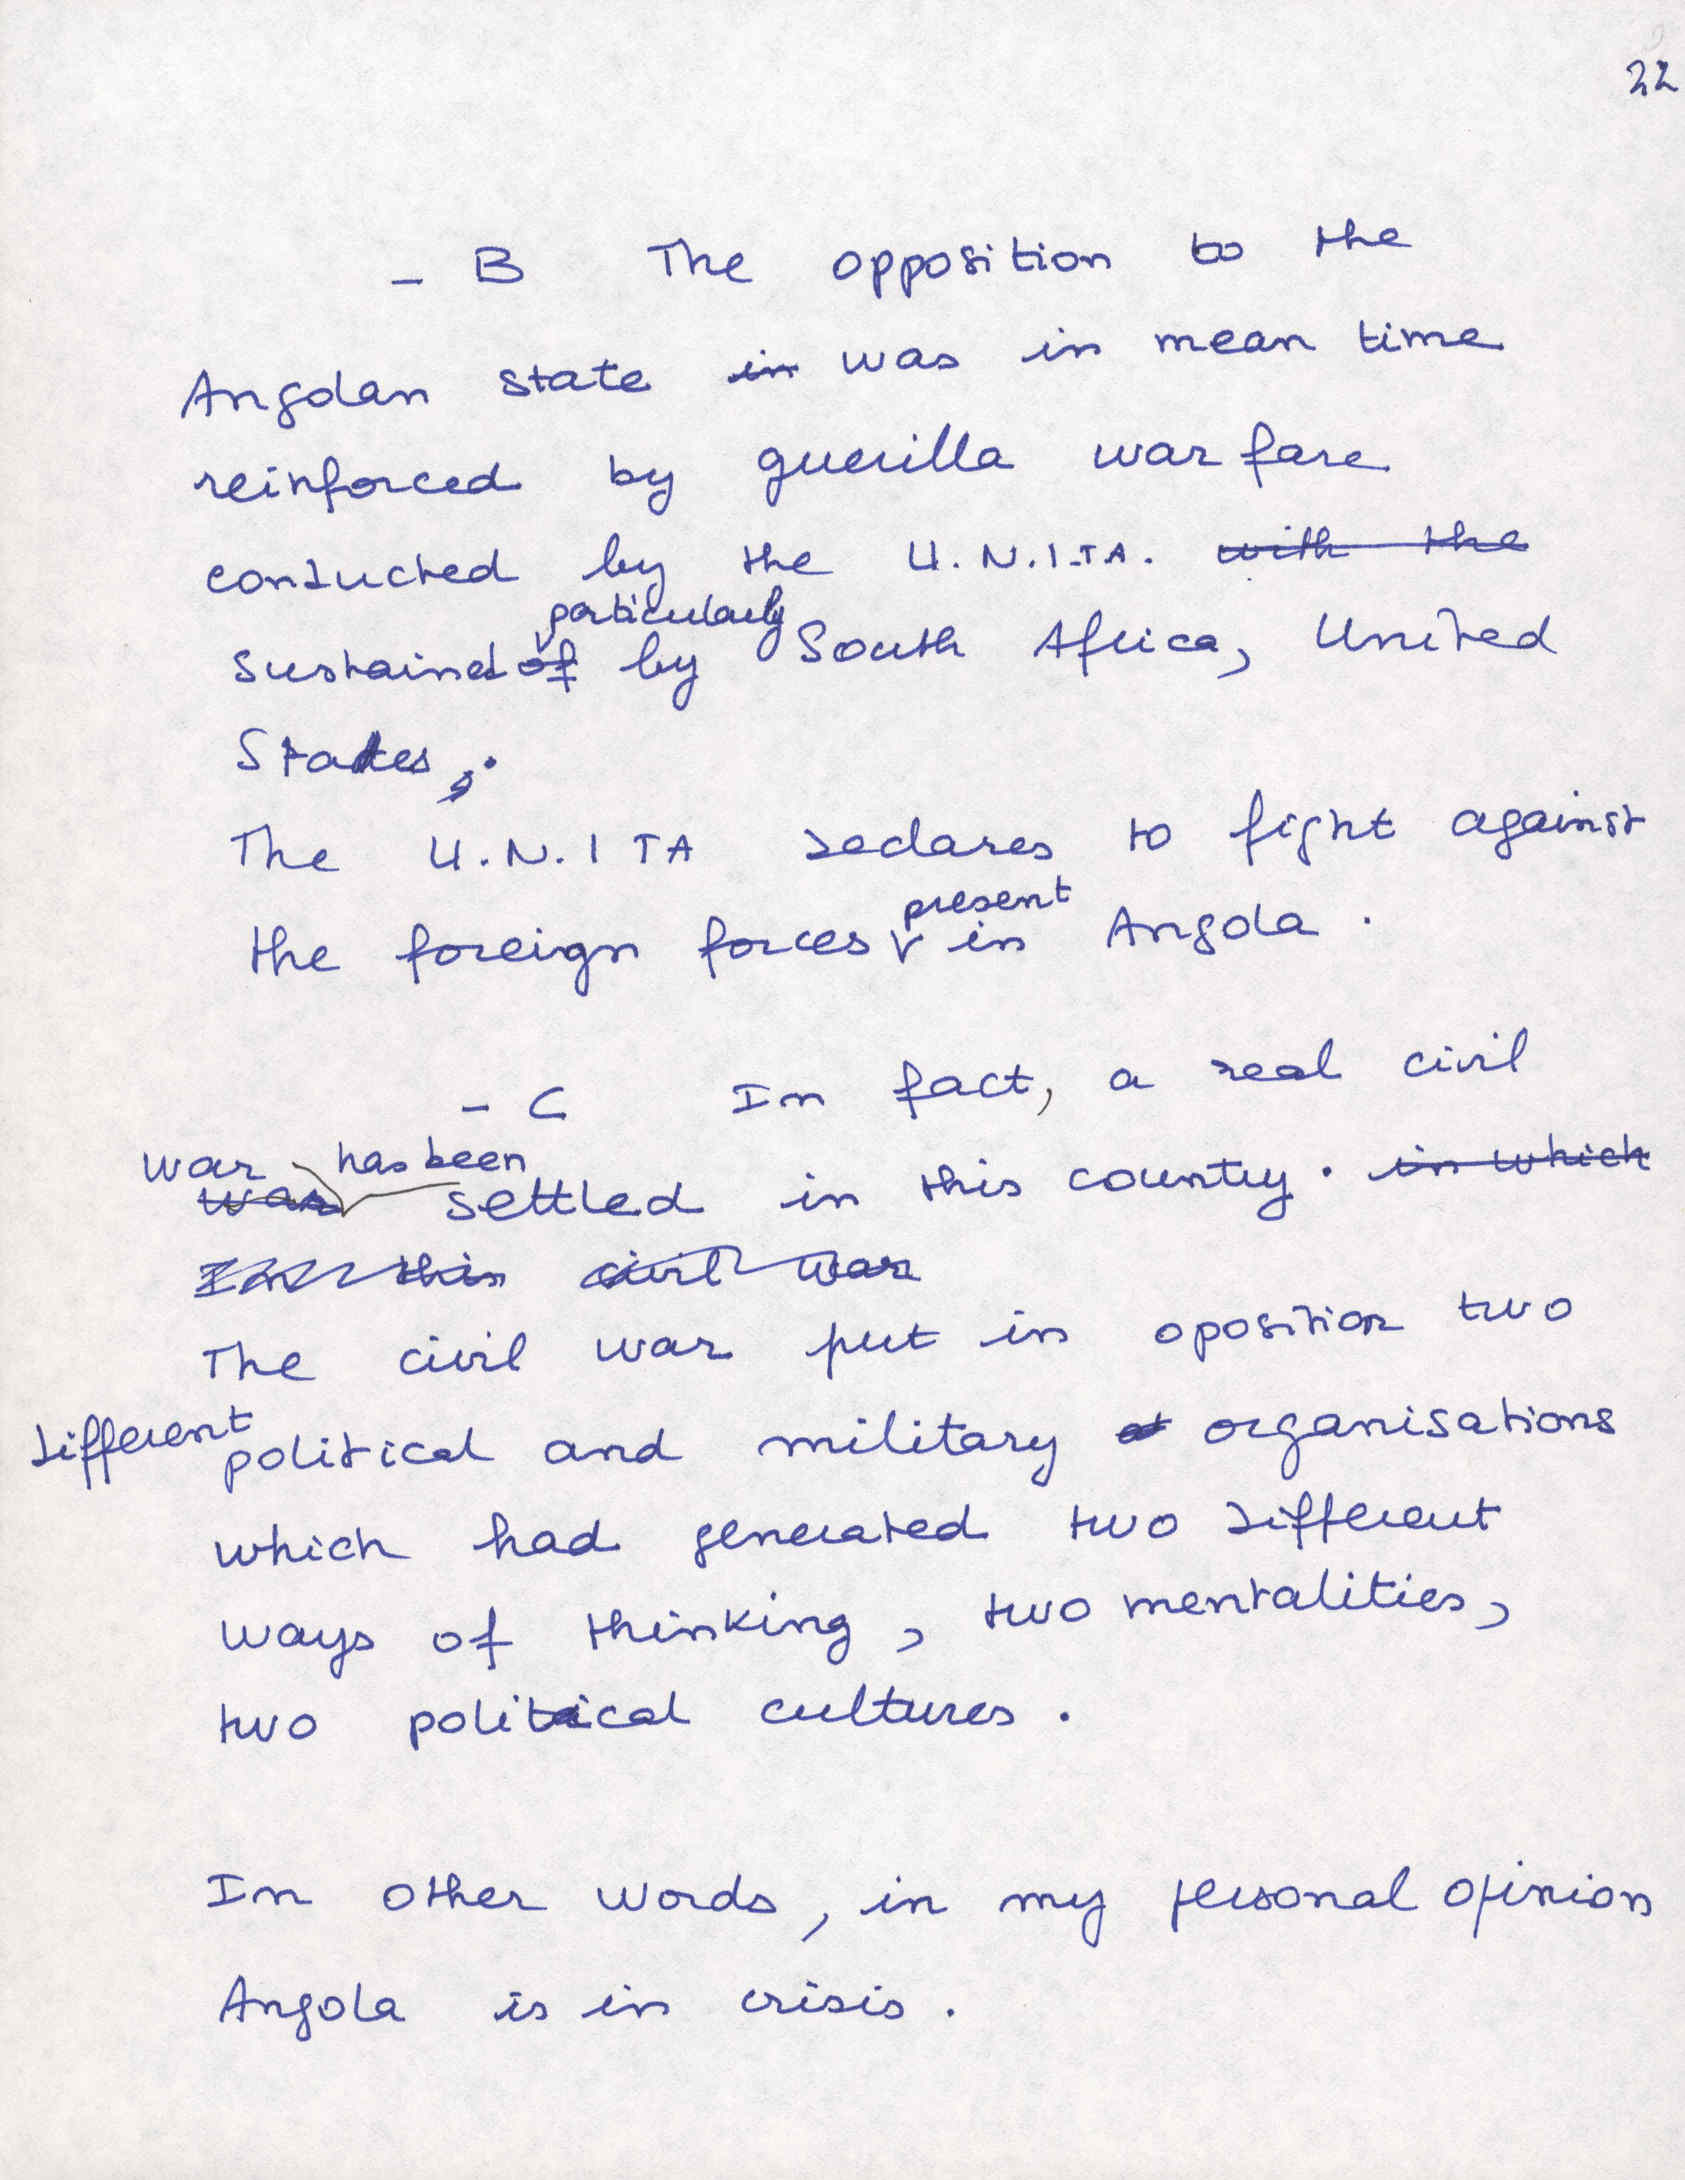 22
- B The opposition to the
Angolan state in was in mean time
reinforced by guerilla warfare
conducted by the U.N.I.TA. with the
particularly
sustained of by South Africa, United
States,.
The U.N.I TA declares to fight against
present
the foreign forces in Angola.
- C In fact, a real civil
war has been
was settled in this country. in which
this civil war
The civil war put in oposition two
different political and military organisations
which had generated two different
ways of thinking, two mentalities,
two political cultures.
In other words, in my personal opinion
Angola is in crisis.